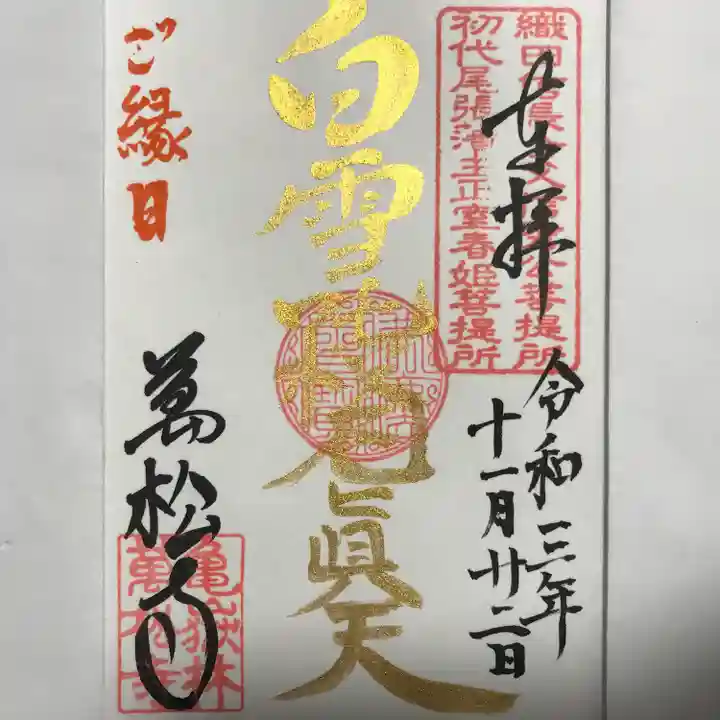 奉拝
織田信長公父信秀公菩提所
初代尾張藩主正室春姫菩提所
令和三年
十一月廿二日
白雪稲荷眞天
ご縁日
萬松寺
亀嶽林
萬松寺